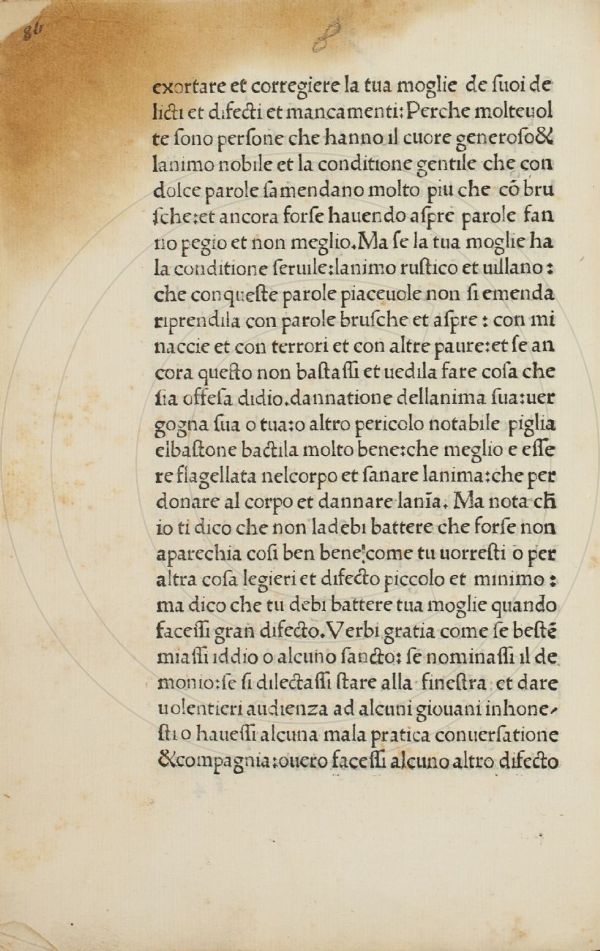 86
8
exortare et corregiere la tua moglie de ſuoi de
licti et difecti et mancamenti: Perche molteuol
te ſono perſone che hanno il cuore generoſo&
lanimo nobile et la conditione gentile che con
dolce parole ſamendano molto piu che cō bru
ſche:et ancora forſe hauendo aſpre parole fan
no pegio et non meglio. Ma ſe la tua moglie ha
la conditione ſeruile:lanimo ruſtico et uillano:
che con queſte parole piaceuole non ſi emenda
riprendila con parole bruſche et aſpre: con mi
naccie et con terrori et con altre paure:et ſe an
cora queſto non baſtaſſi et uedila fare coſa che
ſia offeſa didio.dannatione dellanima ſua:uer
gogna ſua o tua:o altro pericolo notabile piglia
elbaſtone bactila molto bene:che meglio e eſſe
re flagellata nelcorpo et ſanare lanima:che per
donare al corpo et dannare lanīa. Ma nota ch̄
io ti dico che non ladebi battere che forſe non
aparechia coſi ben bene:come tu uorreſti o per
altra coſa legieri et difecto piccolo et minimo:
ma dico che tu debi battere tua moglie quando
faceſſi gran difecto. Verbi gratia come ſe beſtē
miaſſi iddio o alcuno ſancto: ſe nominaſſi il de
monio:ſe ſi dilectaſſi ſtare alla fineſtra et dare
uolentieri audienza ad alcuni giouani inhone⸗
ſti o haueſſi alcuna mala pratica conuerſatione
&compagnia:ouero faceſſi alcuno altro difecto